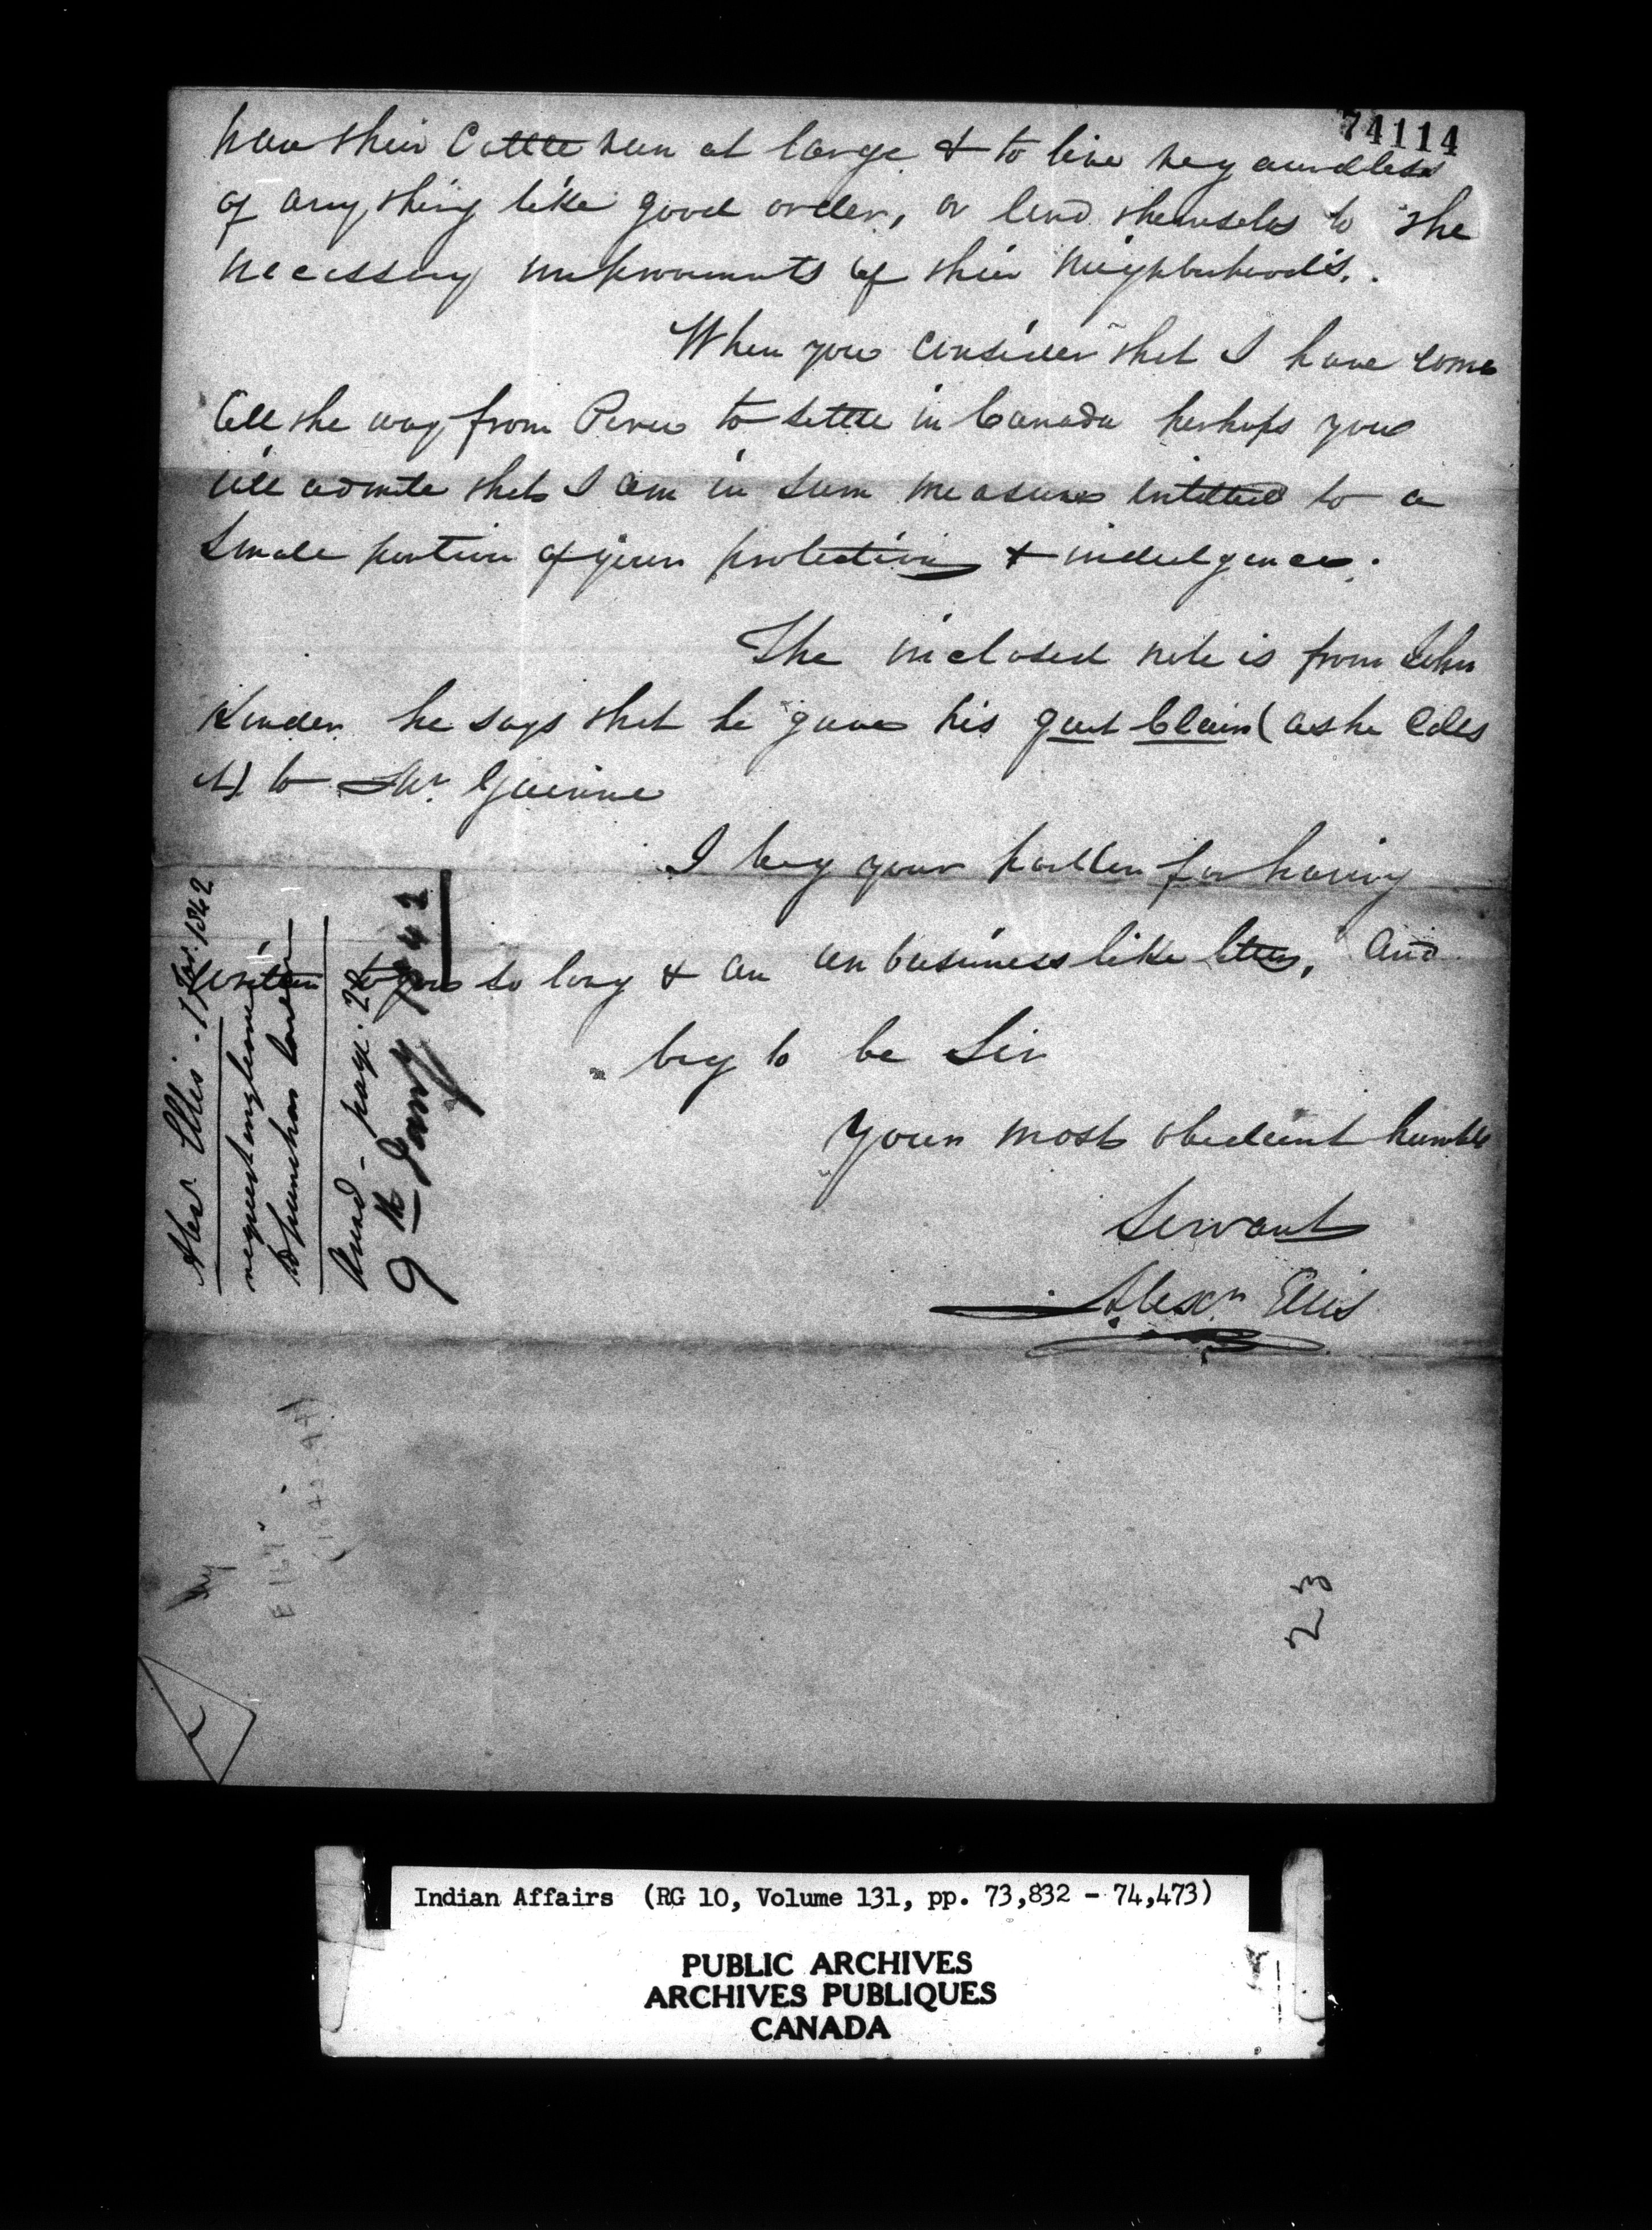 74114
have their Cattle run at large & to live regaurdless
of any thing like good order, or lend themselvs to the
necessary improvments of their Neighbuhood's.
When you consider that I have come
all the way from Peru to settle in Canada perhaps you
will admite that I am in sum measure intitled to a
Small portion of your protection & indulgence.
The inclosed note is from John
he says that he gave his quit Claim (as he calls
it) to Mr.
I beg your pardon for having
written to you so long & an un business like letter, and
beg to be Sir
Your most obedeint humble
Servant
Alexr Ellis
Alexr. Ellis. 1 Jan. 1842
request
to purchase
page. 22
9th Jany 1842
23
Indian Affairs (RG 10, Volume 131, pp. 73,832 - 74,473)
PUBLIC ARCHIVES
ARCHIVES PUBLIQUES
CANADA